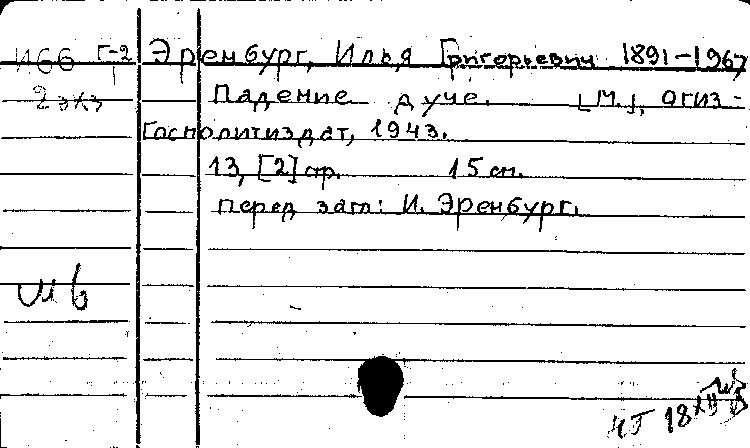 И66 Г-2 Эренбург, Илья Григорьевич 1891-1967
2 экз Падение дуче. [М.], Огиз-
Госполитиздат, 1943.
13, [2] стр. 15 см.
Перед загл: И. Эренбург.